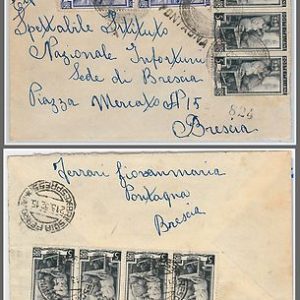 Spettabile Istituto
Nazionale Infortuni
Sede di Brescia
Piazza Mercato N° 15
Brescia
824
Ferrari fioranmaria
Pontagna
Brescia